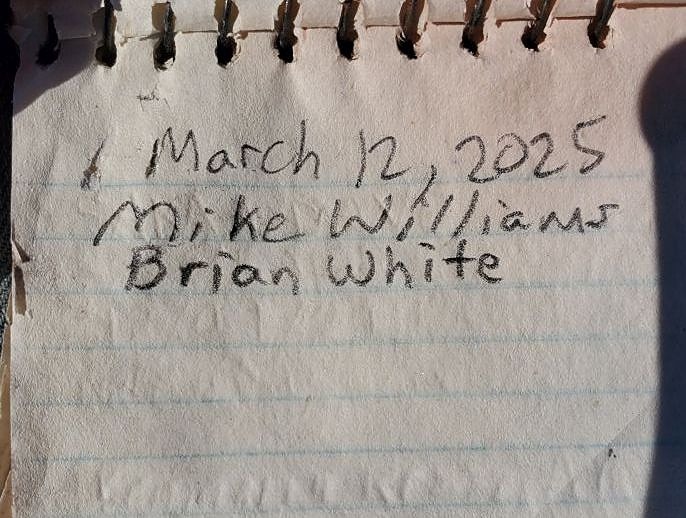 March 12, 2025
Mike Williams
Brian White